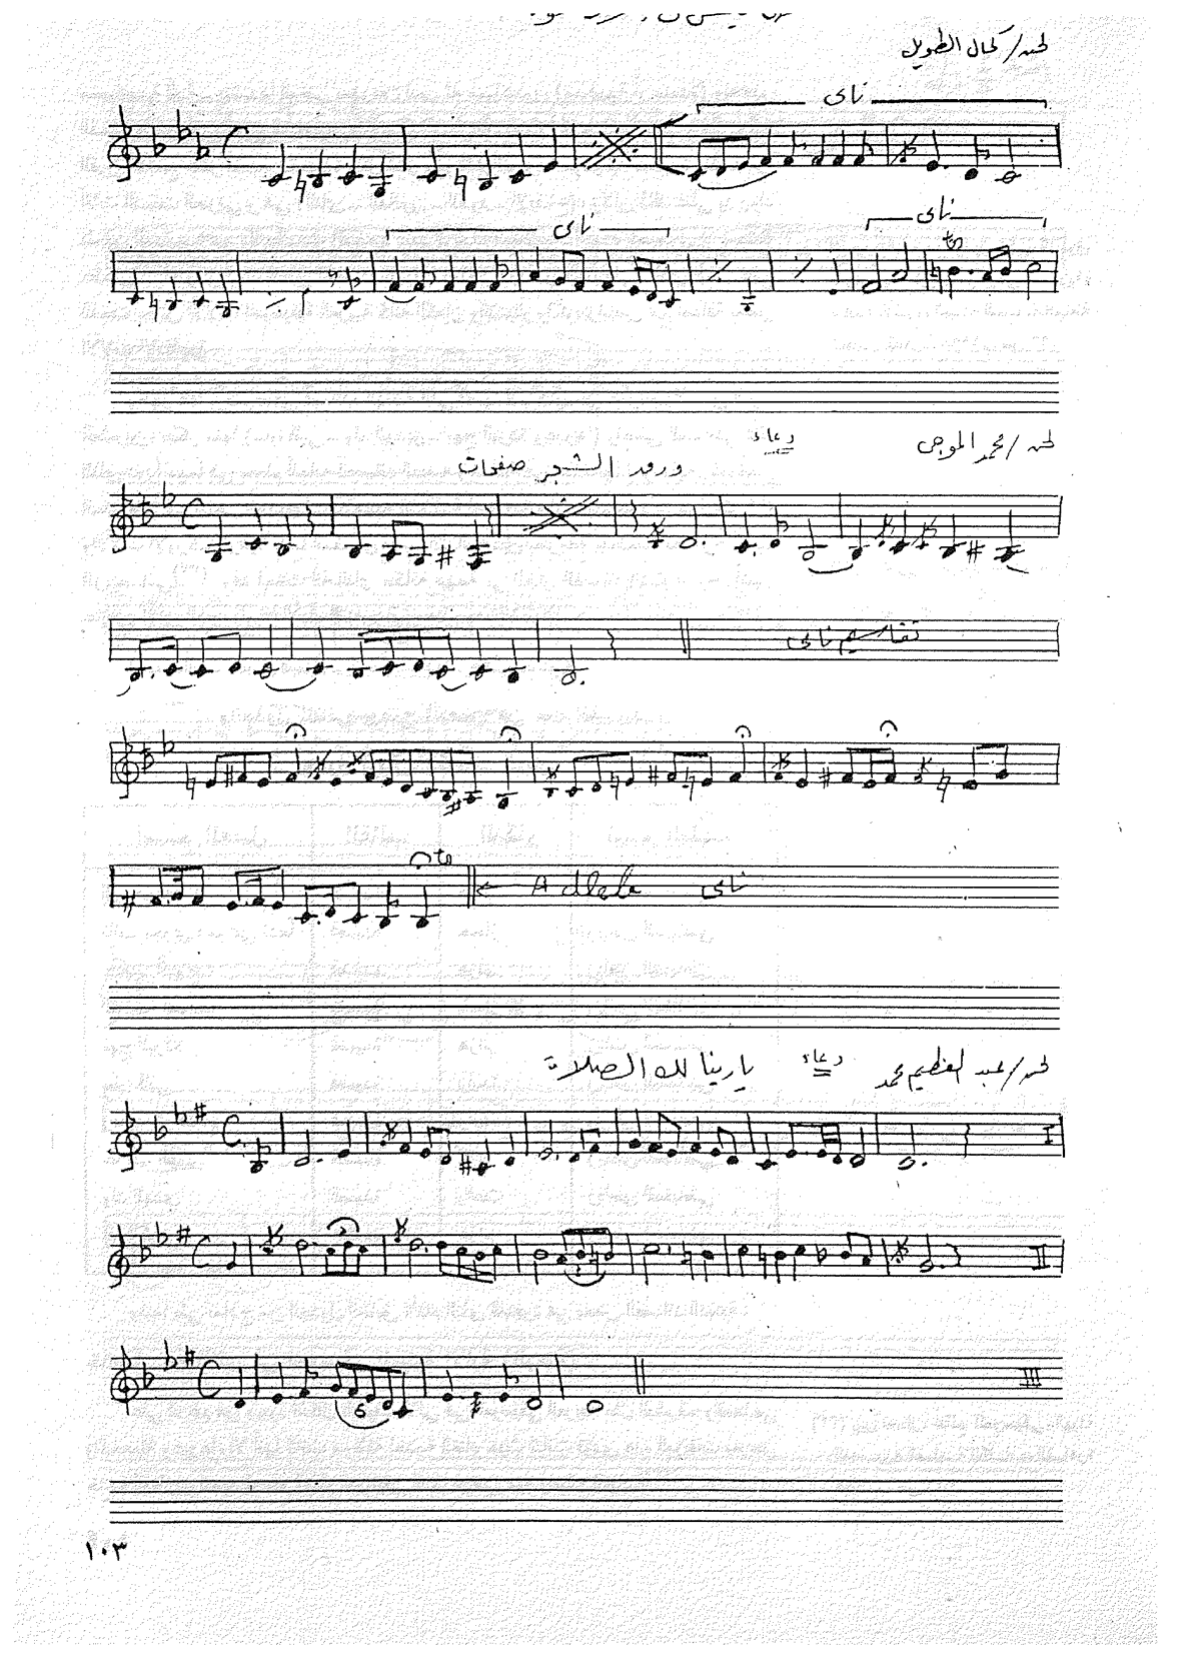 لحن / كمال الطويل
ناى
ناى
ناى
لحن / محمد الموجى دعاء
ورود الشجر صفحات
تقاسيم ناى
Adlela ناى
لحن / عبد العظيم محمد دعاء يا ربنا لك الصلاة
I
II
6
III
١٠٣